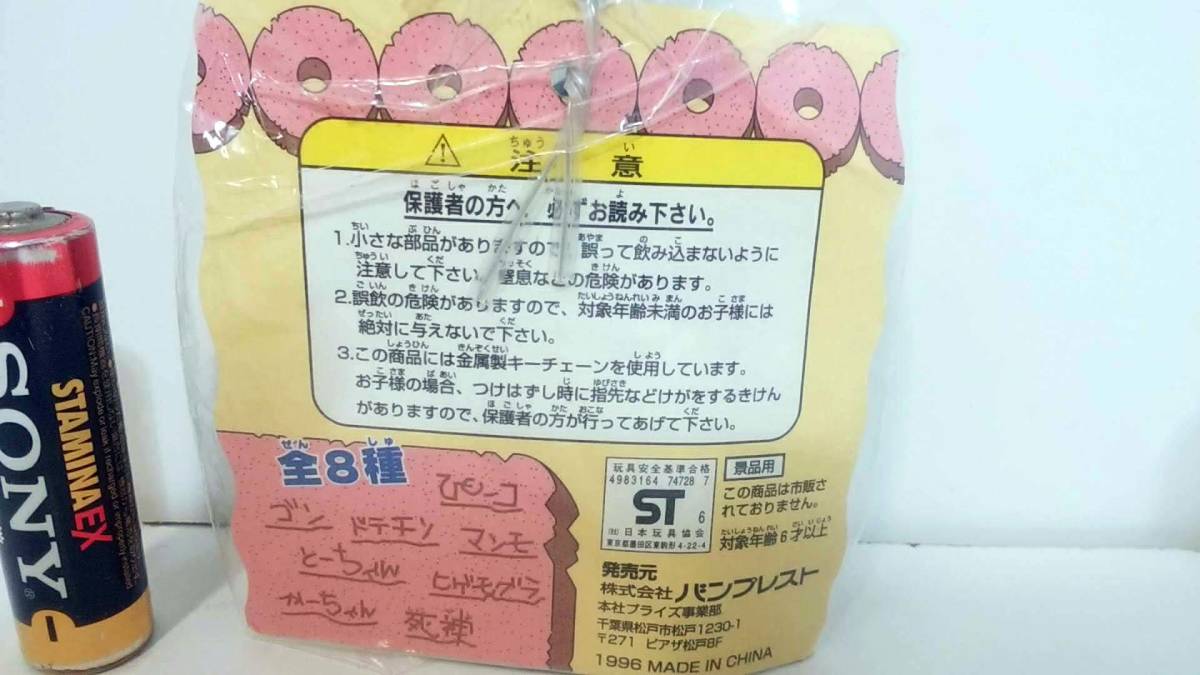 注意
保護者の方へ 必ずお読み下さい。
1.小さな部品がありますので、誤って飲み込まないように
注意して下さい。窒息などの危険があります。
2.誤飲の危険がありますので、対象年齢未満のお子様には
絶対に与えないで下さい。
3.この商品には金属製キーチェーンを使用しています。
お子様の場合、つけはずし時に指先などけがをするきけん
がありますので、保護者の方が行ってあげて下さい。
全8種
ゴン ドテチン
マンモ
とーちゃん
かーちゃん 死神
玩具安全基準合格
4983164 74728 7
ST 6
(社)日本玩具協会
東京都墨田区東駒形4-22-4
景品用
この商品は市販さ
れておりません。
対象年齢6才以上
発売元
株式会社 バンプレスト
本社プライズ事業部
千葉県松戸市松戸1230-1
〒271 ピアザ松戸8F
1996 MADE IN CHINA
SONY
STAMINA EX